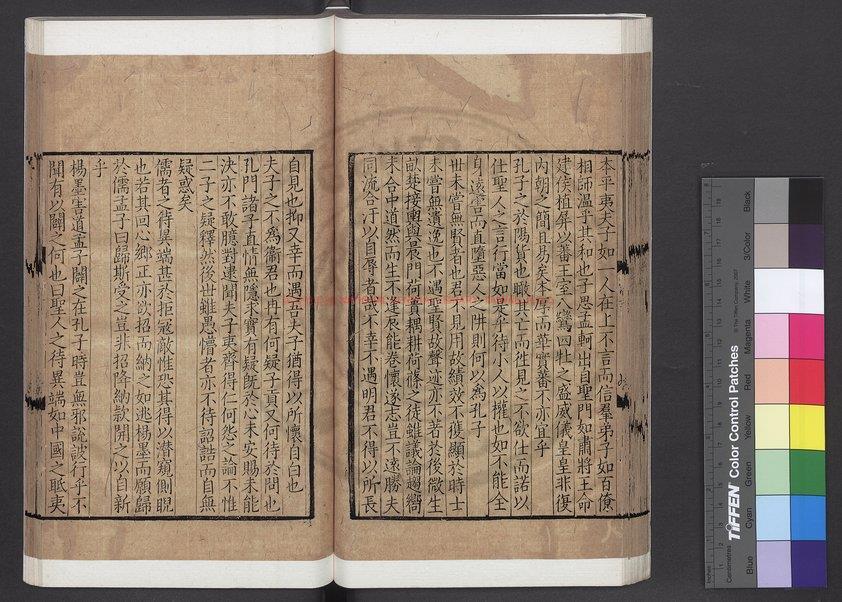 本平夷夫子如一人在上不言而信羣弟子如百僚
相師溫乎其和也子思孟軻出自聖門如肅將王命
建侯植屏以蕃王室八鸞四牡之盛威儀皇皇非復
內朝之簡且易矣本厚而華實蕃不亦宜乎
孔子之於陽貨也瞰其亡而徃見之不欲仕而諾以
仕聖人之言行當如是乎待小人以權也如不能全
身遠害而直墮惡人之阱則何以為孔子
世未嘗無賢者也君不見用故績效不獲顯於時士
未嘗無遺逸也不遇聖賢故聲迹亦不若於後微生
畝楚接輿與晨門荷蕢耦耕荷蓧之徒雖議論趨嚮
未合中道然而生不逢辰能卷懷遂志豈不遠勝夫
同流合汙以自辱者哉不幸不遇明君不得以所長
自見也抑又幸而遇吾夫子猶得以所懷自白也
夫子之不為衞君也冉有何疑子貢又何待於問也
孔門諸子直情無隱求實有疑既於心未安賜未能
決亦不敢臆對逮聞夫子夷齊得仁何怨之論不惟
二子之疑釋然後世雖愚懵者亦不待詔誥而自無
疑惑矣
儒者之待異端甚於拒寇敵惟恐其得以潛窺側睨
也若其回心鄉正亦欲招而納之如逃楊墨而願歸
於儒孟子曰歸斯受之豈非招降納款開之以自新
乎
楊墨害道孟子闢之在孔子時豈無邪說詖行乎不
聞有以闢之何也曰聖人之待異端如中國之眡夷
TIFFEN Color Control Patches
© The Tiffen Company, 2007
Centimetres
Inches
Blue
Cyan
Green
Yellow
Red
Magenta
White
3/Color
Black